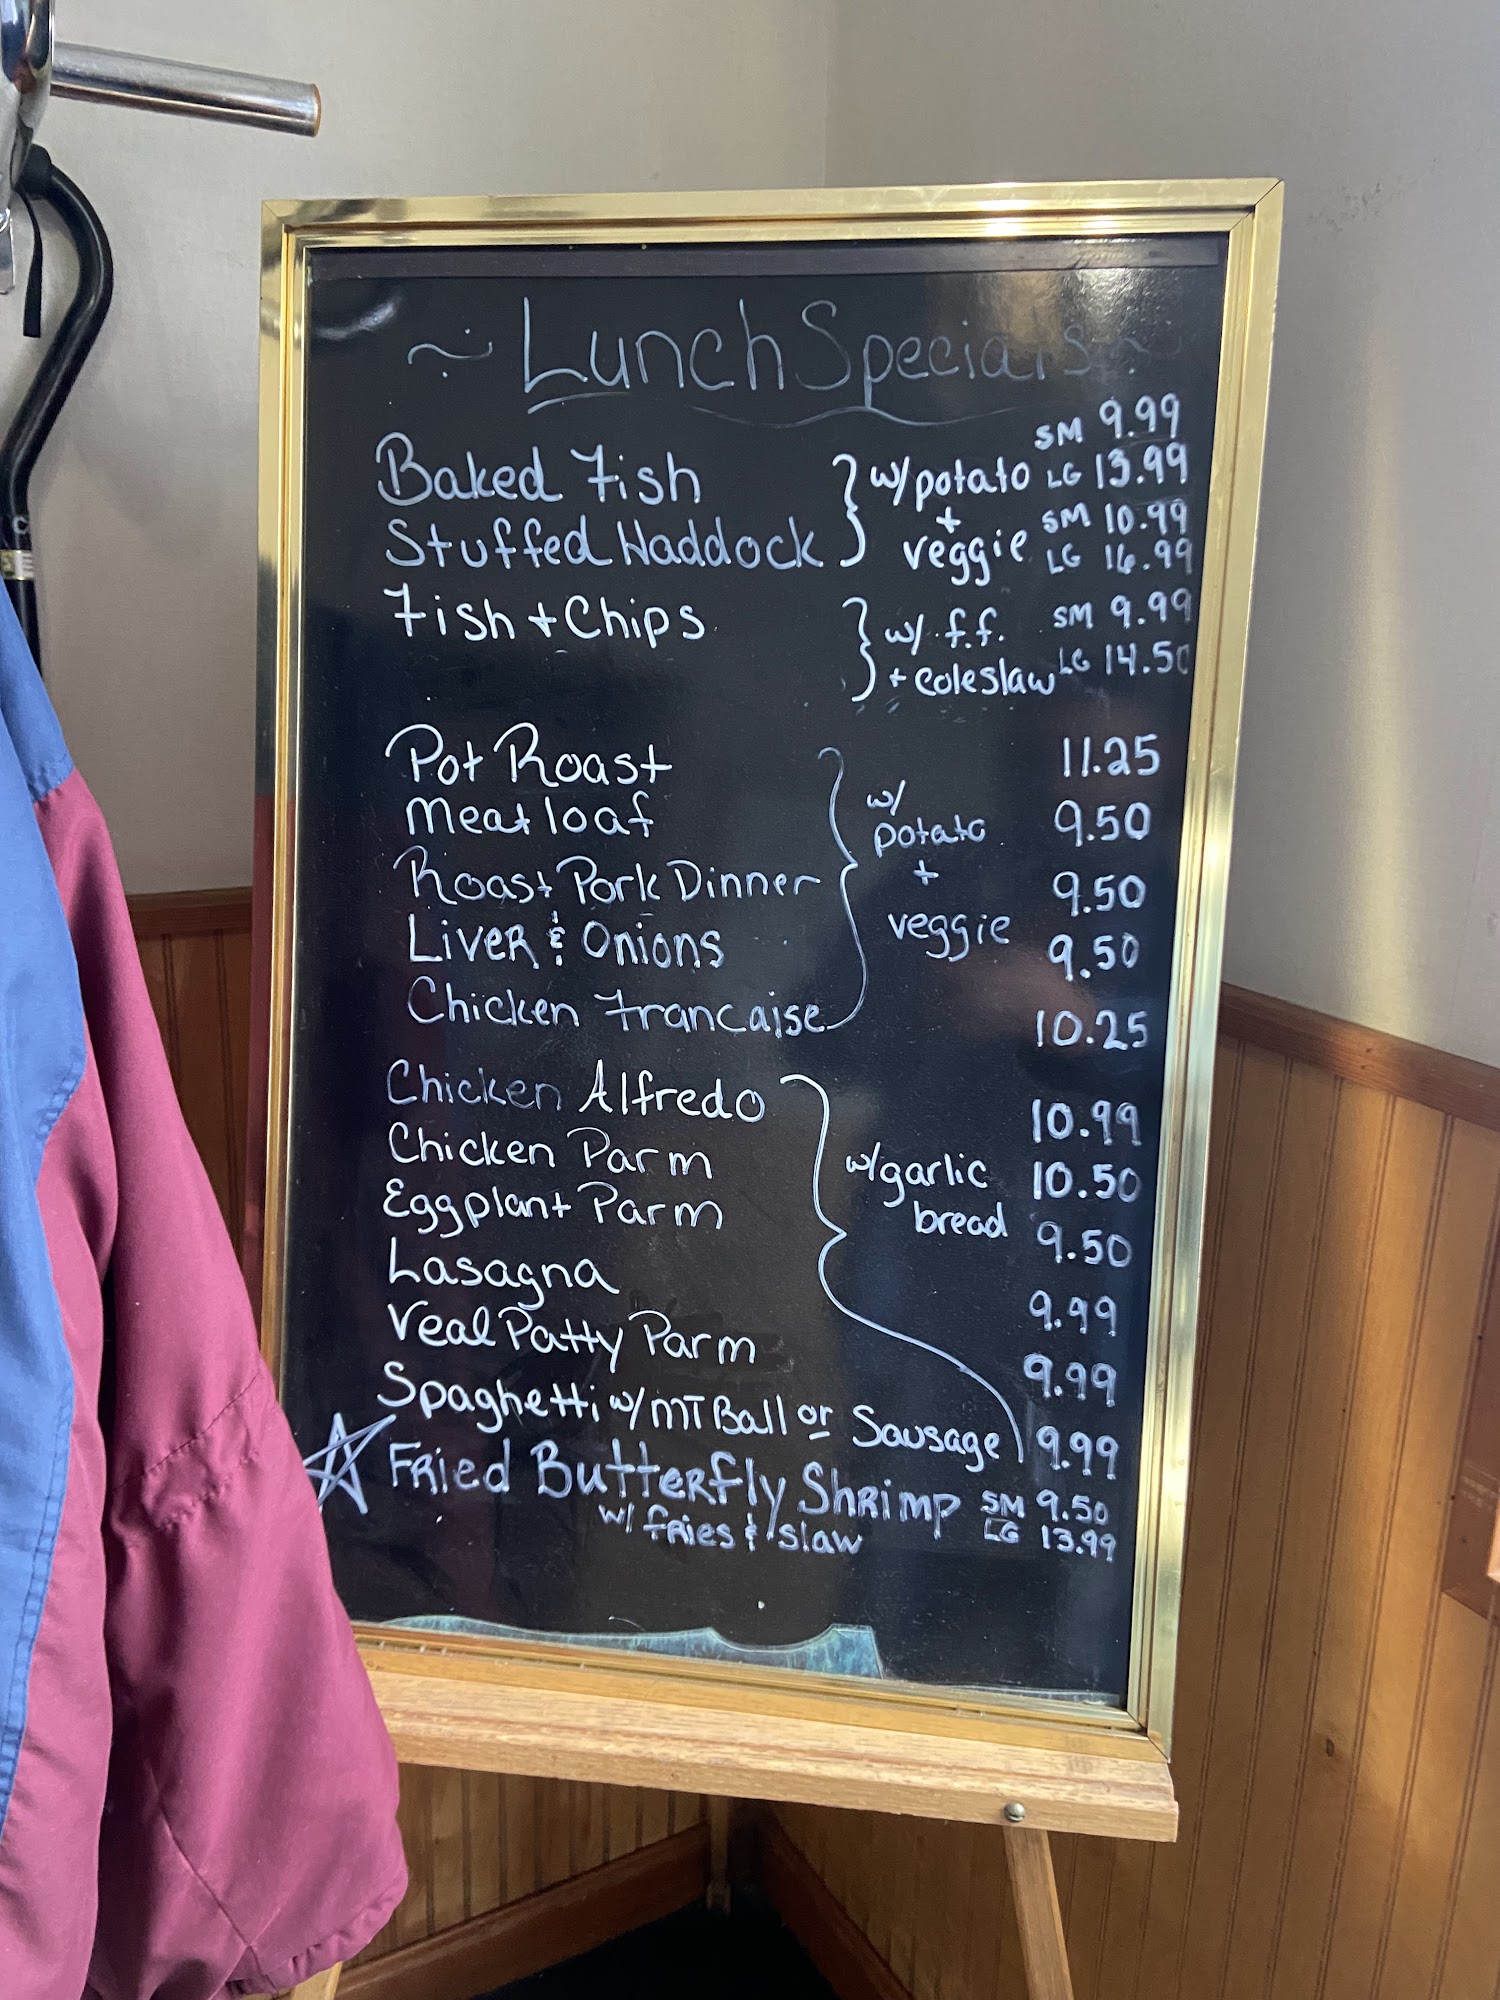 ~ Lunch Specials ~
SM 9.99
Baked Fish w/potato LG 13.99
+ SM 10.99
Stuffed Haddock veggie LG 16.99
Fish + Chips w/ f.f. SM 9.99
+ coleslaw LG 14.50
Pot Roast 11.25
w/
Meatloaf potato 9.50
+
Roast Pork Dinner 9.50
Liver & Onions veggie 9.50
Chicken Francaise 10.25
Chicken Alfredo 10.99
Chicken Parm w/garlic 10.50
Eggplant Parm bread 9.50
Lasagna 9.99
Veal Patty Parm 9.99
Spaghetti w/ MT Ball or Sausage 9.99
Fried Butterfly Shrimp SM 9.50
w/ fries & slaw LG 13.99